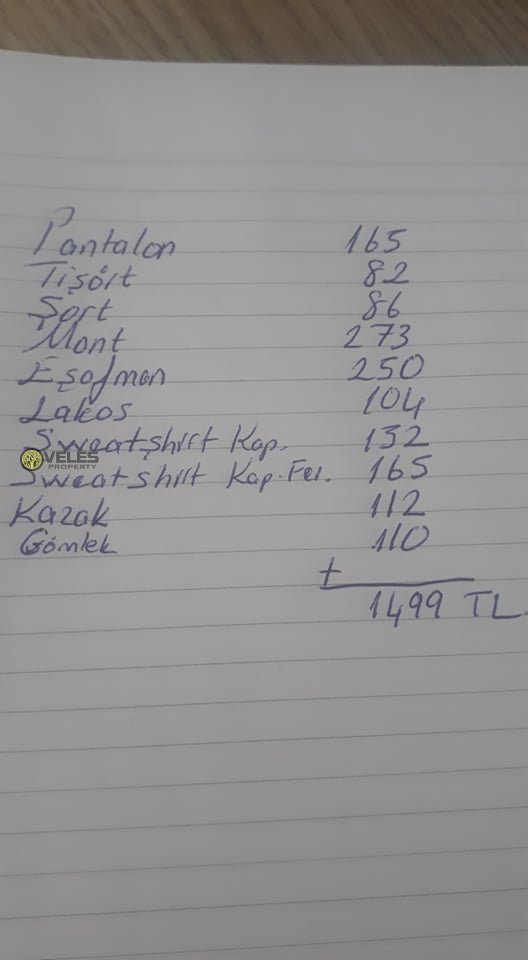 Pantalon 165
Tişört 82
Şort 86
Mont 273
Eşofman 250
Lakos 104
Sweatshirt Kap. 132
VELES
PROPERTY
Sweatshirt Kap. Fer. 165
Kazak 112
Gömlek 110
+
1499 TL.